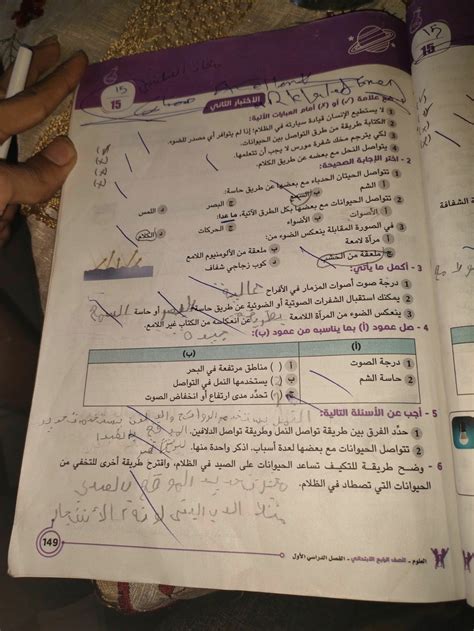 15
15
الاختبار الثاني
ضع علامة (✓) أو (X) أمام العبارات الآتية:
1 لا يستطيع الإنسان قيادة سيارته في الظلام؛ إذا لم يتوافر أي مصدر للضوء.
2 الكتابة طريقة من طرق التواصل بين الحيوانات.
3 لكي يترجم مخك شفرة مورس لا يجب أن تتعلمها.
4 يتواصل النحل مع بعضه عن طريق الكلام.
2 - اختر الإجابة الصحيحة:
1 تتواصل الحيتان الحدباء مع بعضها عن طريق حاسة:
أ الشم ب السمع ج البصر د اللمس
2 تتواصل الحيوانات مع بعضها بكل الطرق الآتية، ما عدا:
أ الأصوات ب الأضواء ج الحركات د الكلام
3 في الصورة المقابلة ينعكس الضوء من:
أ مرآة لامعة ب ملعقة من الألومنيوم اللامع
ج ملعقة من الخشب د كوب زجاجي شفاف
3 - أكمل ما يأتي:
1 درجة صوت أصوات المزمار في الأفراح عالية
2 يمكنك استقبال الشفرات الصوتية أو الضوئية عن طريق حاسة أو حاسة السمع
3 ينعكس الضوء من المرآة اللامعة عن انعكاسه من الكتاب غير اللامع.
4 - صل عمود (أ) بما يناسبه من عمود (ب):
(أ) (ب)
1 درجة الصوت
2 حاسة الشم
أ ( ) مناطق مرتفعة في البحر
ب ( ) يستخدمها النمل في التواصل
ج ( ) تحدّد مدى ارتفاع أو انخفاض الصوت
5 - أجب عن الأسئلة التالية:
1 حدّد الفرق بين طريقة تواصل النمل وطريقة تواصل الدلافين.
2 تتواصل الحيوانات مع بعضها لعدة أسباب. اذكر واحدة منها.
6 - وضح طريقة للتكيف تساعد الحيوانات على الصيد في الظلام، واقترح طريقة أخرى للتخفي من
الحيوانات التي تصطاد في الظلام.
149
العلوم - الصف الرابع الابتدائي - الفصل الدراسي الأول